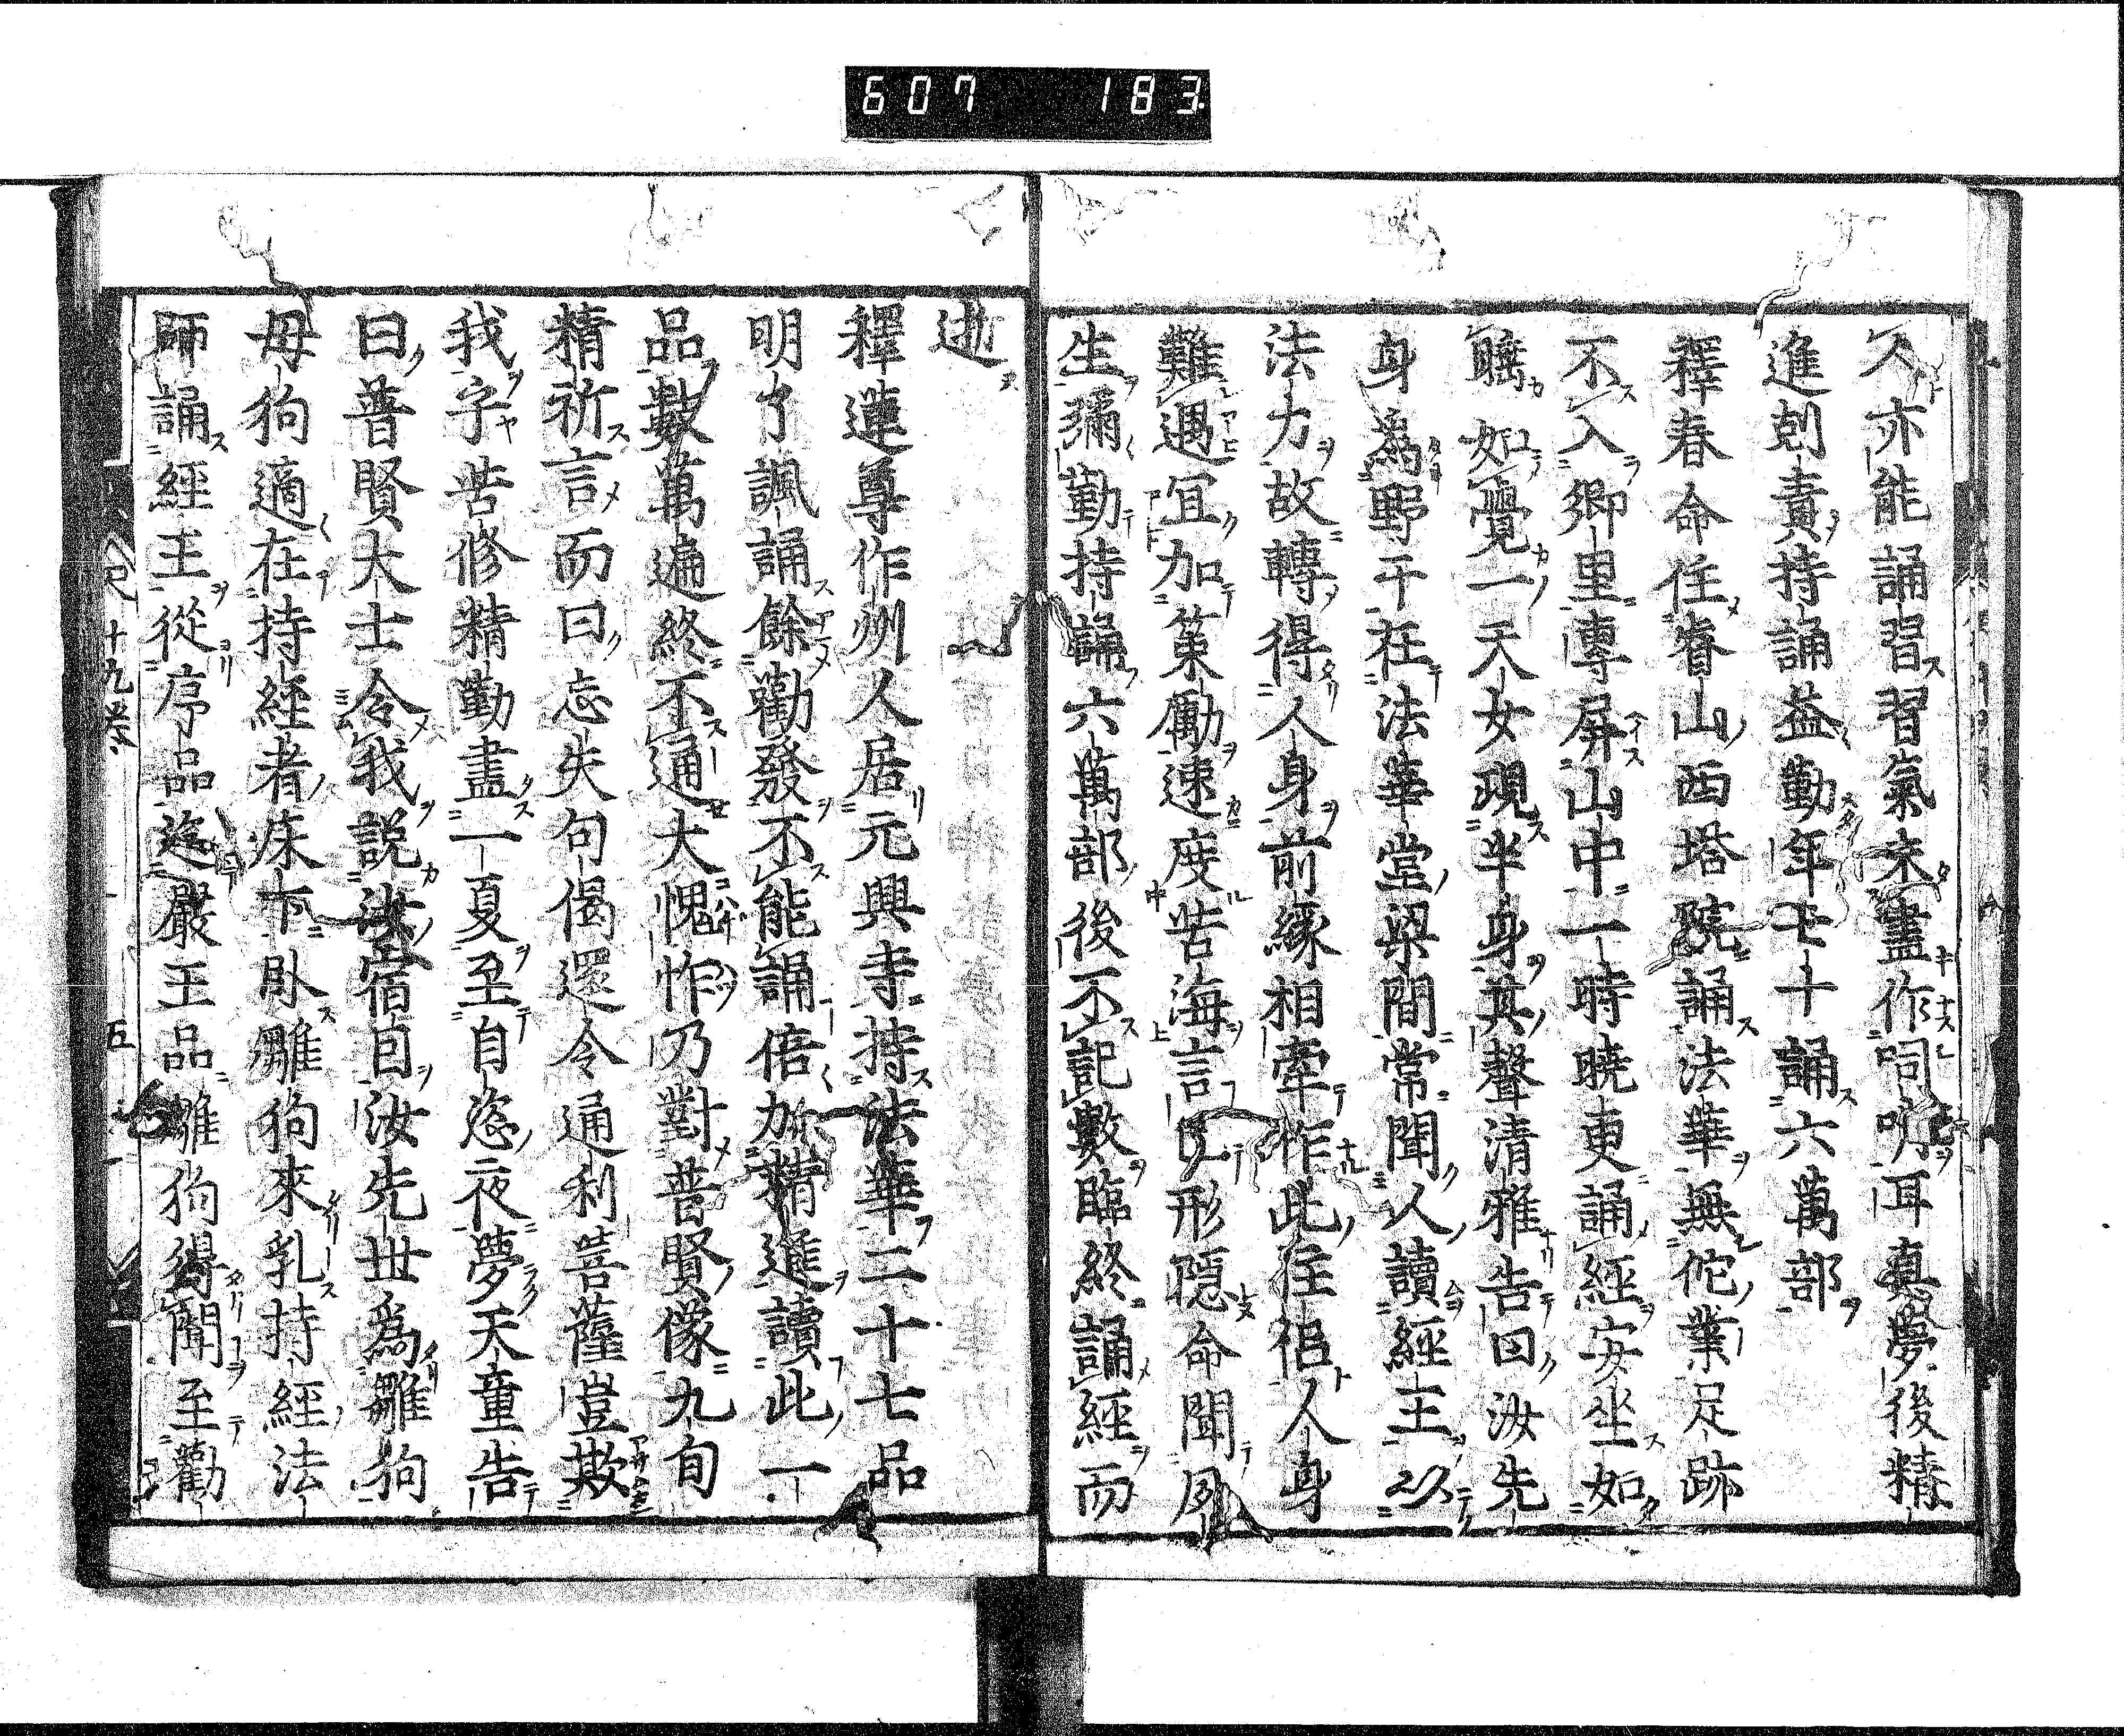 607 183
人亦能誦習習氣未盡作呞呞耳眞夢後精
進剋責持誦益勤年七十誦六萬部
釋春命住睿山西塔院誦法華無佗業足跡
不入鄉里專屏山中一時曉更誦經安坐如
睡如覺一天女現半身其聲清雅告曰汝先
身爲野干在法華堂梁間常聞人讀經王以
法力故轉得人身前緣相牽作此住侶人身
難遇宜加策勵速度苦海言已形隱命聞夙
生彌勤持誦六萬部後不記數臨終誦經而
逝
釋蓮尊作州人居元興寺持法華二十七品
明了諷誦餘勸發不能誦倍加精進讀此一
品數萬遍終不通大愧怍乃對普賢像九旬
精祈言而曰忘失句偈還令通利菩薩豈欺
我乎苦修精勤盡一夏至自恣夜夢天童告
曰普賢大士令我說汝宿因汝先世爲雛狗
母狗適在持經者床下臥雛狗來乳持經法
師誦經王從序品迄嚴王品雛狗得聞至勸
史 十九卷 五